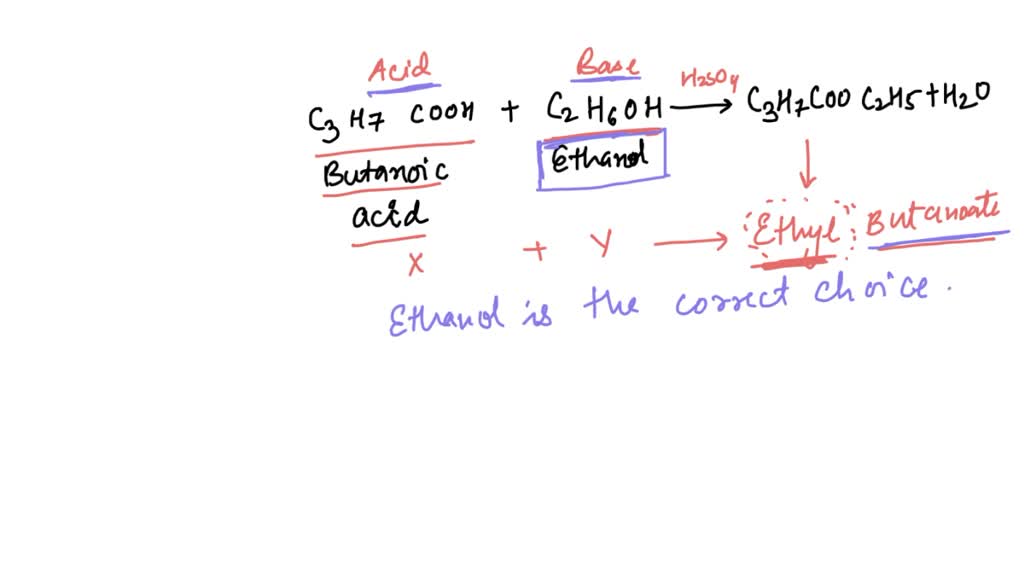 Acid Base
C3H7 COOH + C2H6OH H2SO4 → C3H7COO C2H5+H2O
Butanoic Ethanol
acid
X + Y → Ethyl Butanoate
Ethanol is the correct choice.